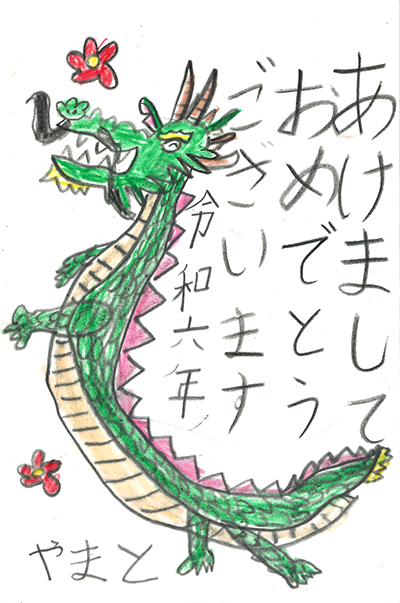 あけまして
おめでとう
ございます
令和六年
やまと